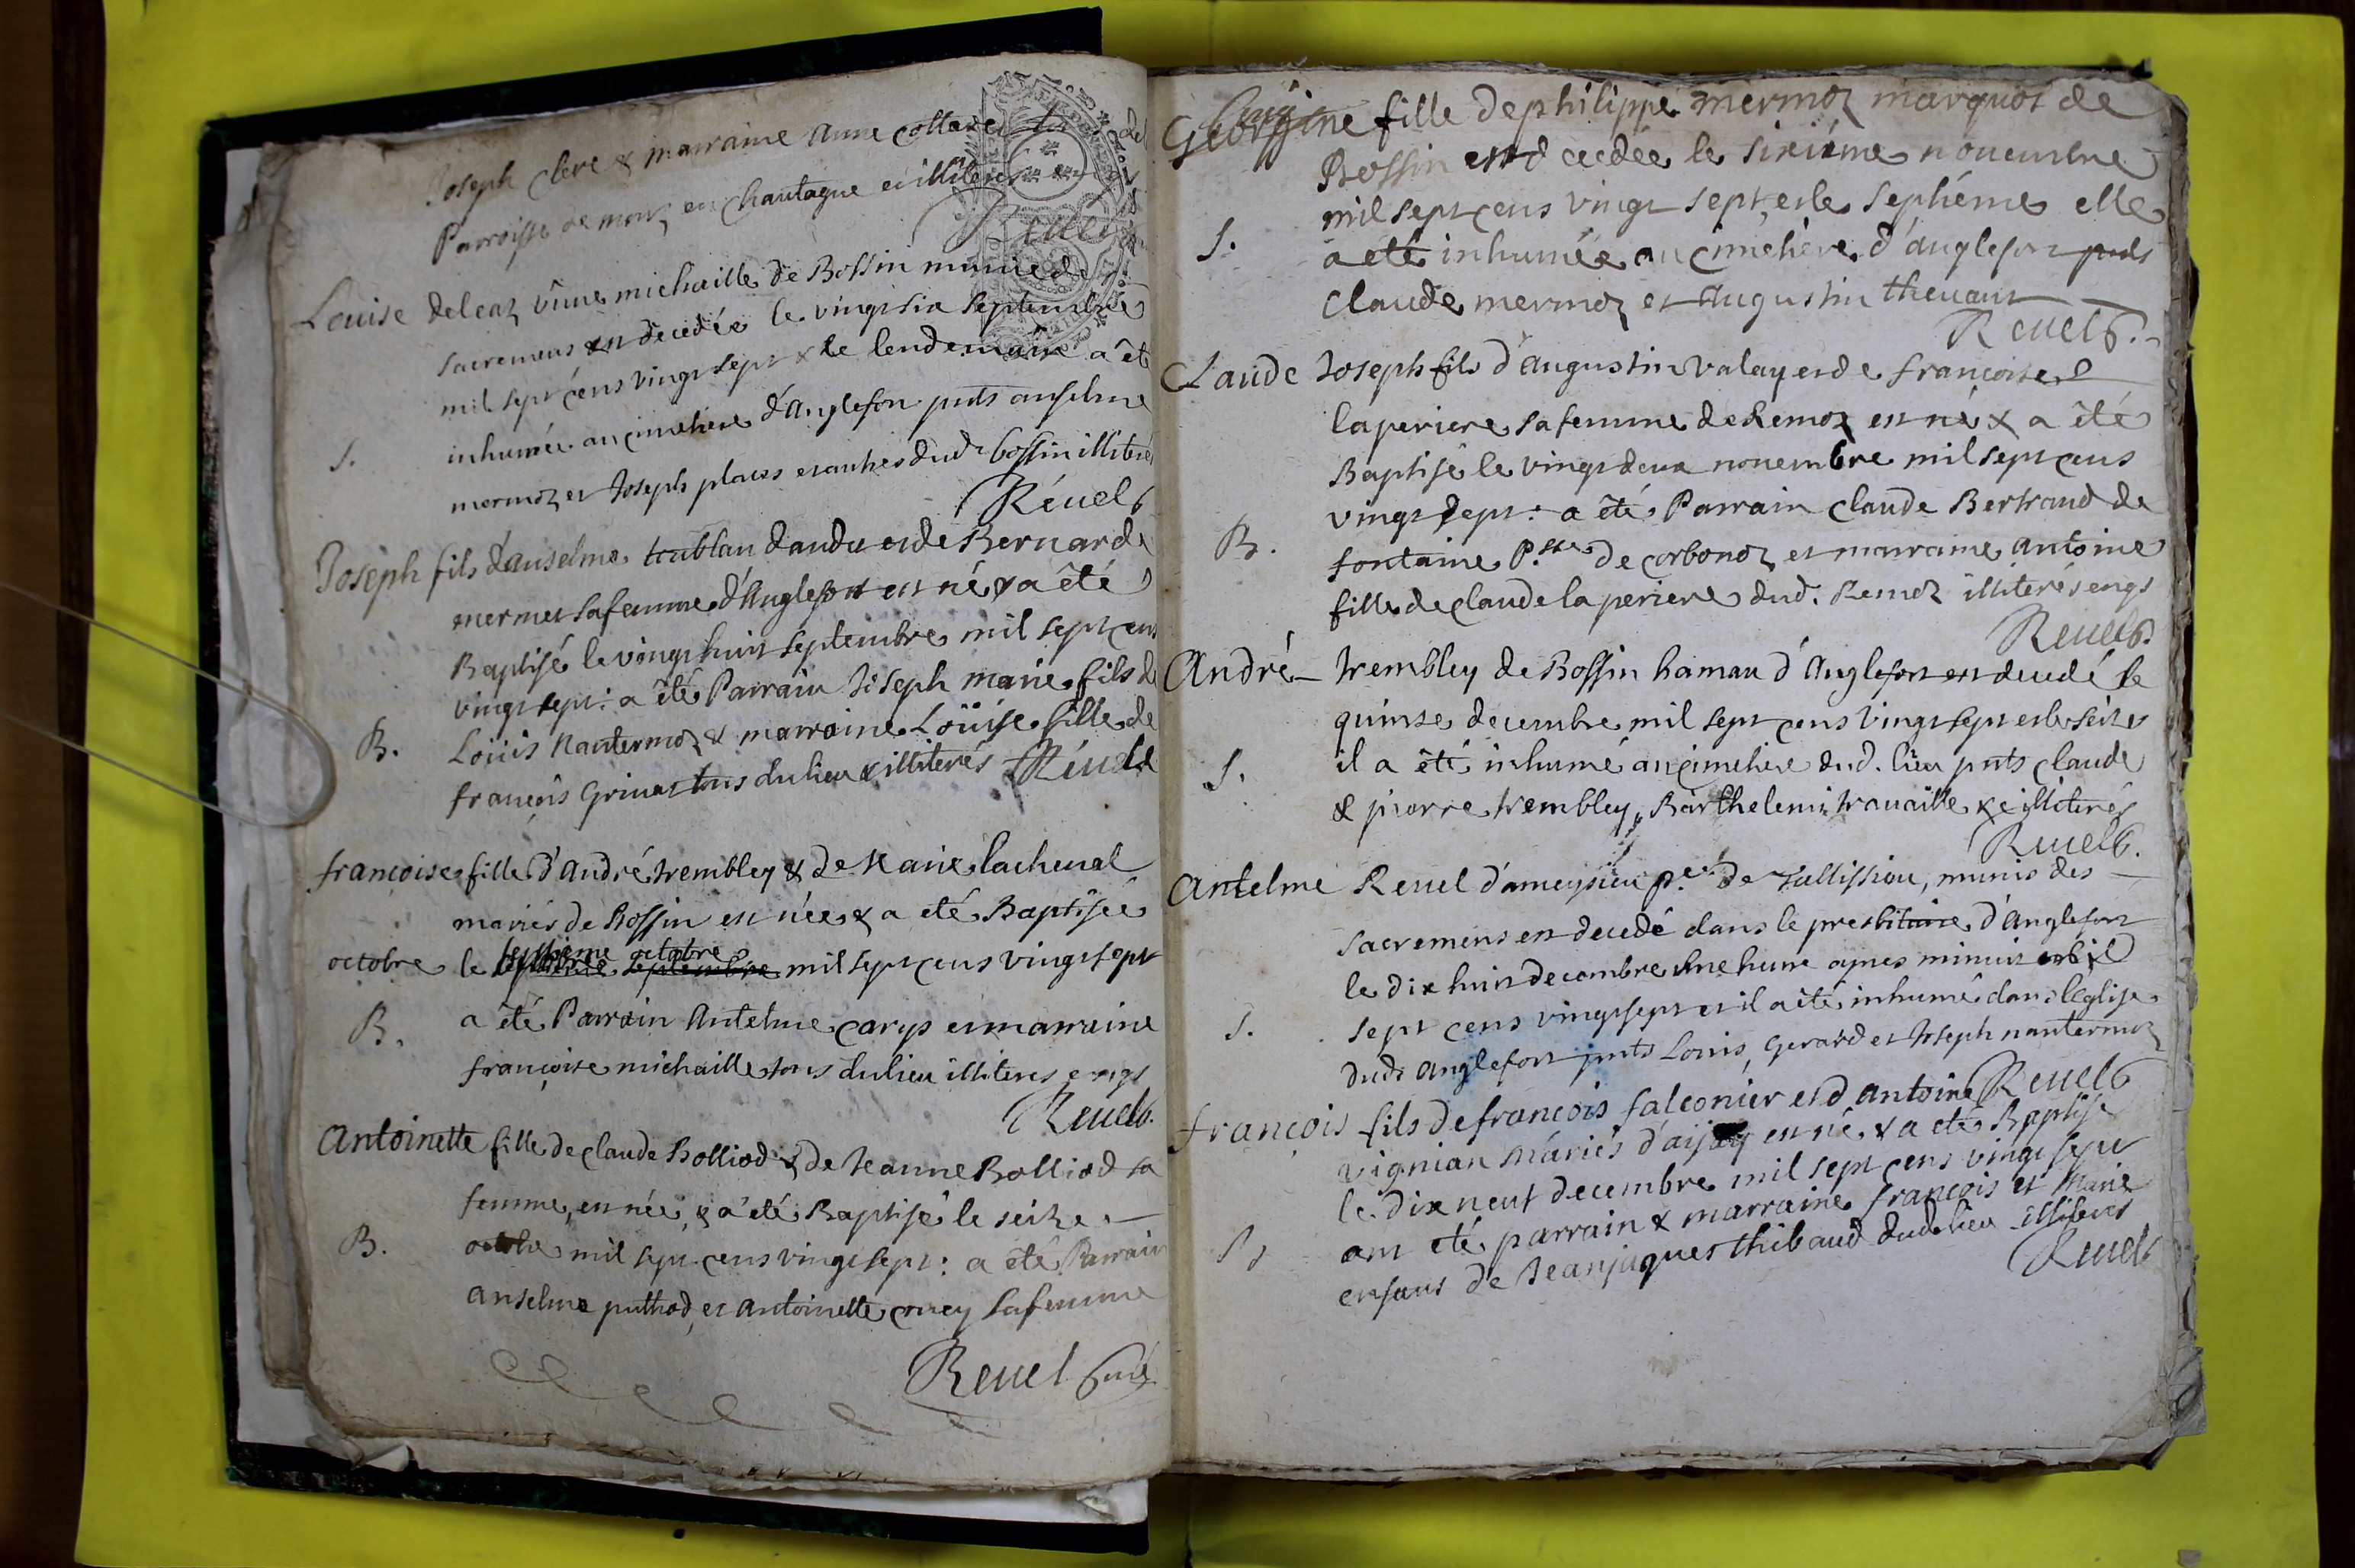 Joseph clerc & marraine anne collaret
Parroisse de motz en chautagne
Reuel
Louise deleaz vüue michaille de Bossin munie de
sacremens est decedée le vingt six septembre
mil sept cens vingt sept & le lendemain a êté
inhumée au cimetiere d'Anglefort pnts anselme
S.
mermoz et Joseph places et autres dud. bossin illiterés
Réuel c
Joseph fils d'anselme troublan dandu et de Bernarde
mermet sa femme d'Anglefort est né & a êté
Baptisé le vingt huit septembre mil sept cens
vingt sept: a êté Parrain Joseph marie fils de
B.
Loüis Nantermoz & marraine Loüise fille de
françois Grinat tous du lieu & illiterés Réuel c
françoise fille d'André trembley & de Marie lacheual
mariés de Bossin est née & a eté Baptisée
octobre le septieme septembre septieme octobre mil sept cens vingt sept
B.
a êté Parrain Antelme carys et marraine
françoise michaille tous du lieu illiteres enqs
Reuel c.
Antoinette fille de claude Bolliod & de Jeanne Bolliod sa
femme, est née, & a été Baptisé le seize
B.
octobre mil sept cens vingt sept: a êté Parrain
anselme puthod, et antoinette sa femme
Reuel curé
Georgine fille de philippe mermoz marquot de
Bossin est decedée le sixiéme nouembre
mil sept cens vingt sept, et le septiéme elle
S.
a eté inhumée au cimetiére d'anglefort pnts
Claude mermoz et Augustin theuant
Reuel c.
Claude Joseph fils d'augustin valay et de françoise
laperiere sa femme de Remoz est né & a êté
Baptisé le vingt deux nouembre mil sept cens
vingt sept: a êté Parrain Claude Bertrand de
B.
fontaine P.sse de corbonoz et marraine antoine
fille de claude laperiere dud. Remoz illiterés enqs
Reuel c.
André trembley de Bossin hamau d'Anglefort est decedé le
quinze decembre mil sept cens vingt sept et le seize
S.
il a êté inhumé au cimetiere dud. lieu pnts claude
& pierre trembley, Barthelemi trauaille & illiterés
Reuel c.
Antelme Reuel d'ameysieu de Tallissieu, munis des
sacremens est decedé dans le presbitaire d'Anglefort
le dix huit decembre une heure apres minuit mil
S.
sept cens vingt sept et il a êté inhumé dans l'Eglise
dud. anglefort pnts Louis, Gerard et Joseph nantermoz
Reuel c
françois fils de françois falconier et d'antoine
vignian máriés d'ai est né & a eté Baptisé
le dix neuf decembre mil sept cens vingt sept
ont eté parrain & marraine françois et Marie
enfans de Jeanjaques thibaud dud. lieu illiterés
Reuel c